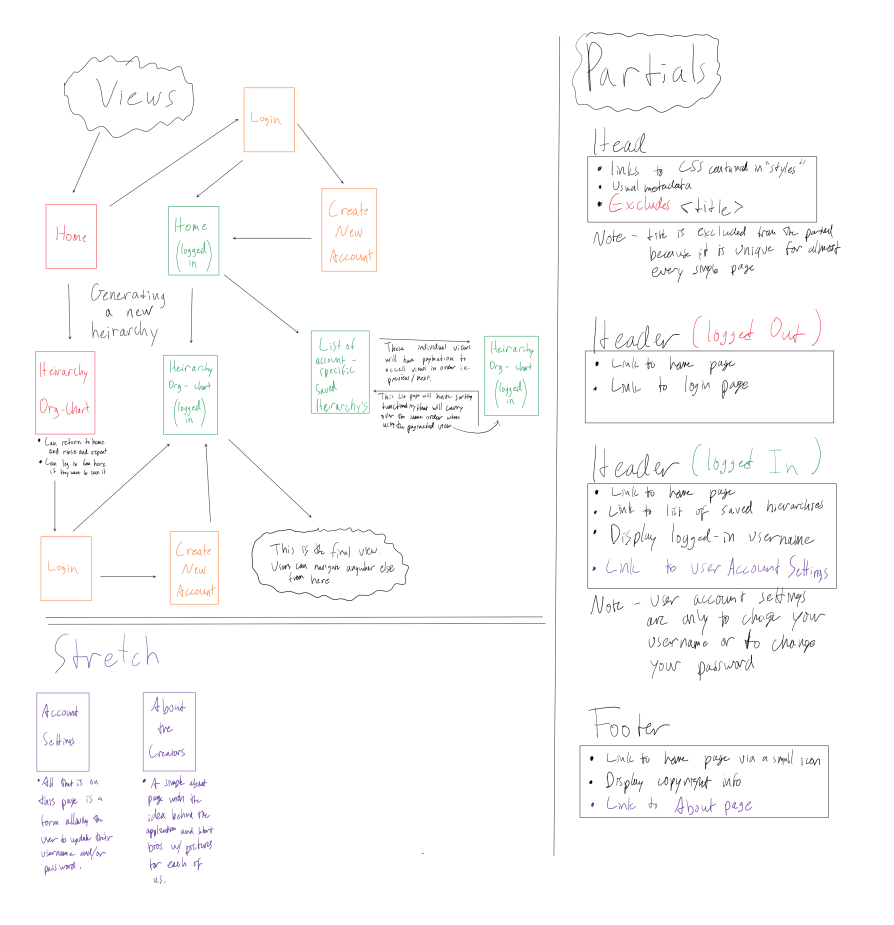 Views
Login
Home
Home
(logged
in)
Create
New
Account
Generating
a new
heirarchy
Heirarchy
Org-Chart
• Can return to home
and rinse and repeat
• Can log in from here
if they want to save it
Heirarchy
Org-chart
(logged
in)
List of
account-
specific
Saved
Heirarchy's
These individual views
will have pagination to
access views in order i.e.
previous/next.
This list page will have sorting
functionality that will carry
over the same order when
using the paginated view
Heirarchy
Org-chart
(logged
in)
Login
Create
New
Account
This is the final view.
Users can navigate else
from here.
Stretch
Account
Settings
• All that is on
this page is a
form allowing the
user to update their
username and/or
password.
About
the
Creators
• A simple about
page with the
idea behind the
application and
bios w/ pictures
for each of
us.
Partials
Head
• links to CSS contained in "styles"
• Usual metadata
• Excludes <title>
Note - title is excluded from the partial
because it is unique for almost
every single page
Header (logged Out)
• Link to home page
• Link to login page
Header (logged In)
• Link to home page
• Link to list of saved hierarchies
• Display logged-in username
• Link to user Account Settings
Note - user account settings
are only to change your
username or to change
your password
Footer
• Link to home page via a small icon
• Display copyright info
• Link to About page